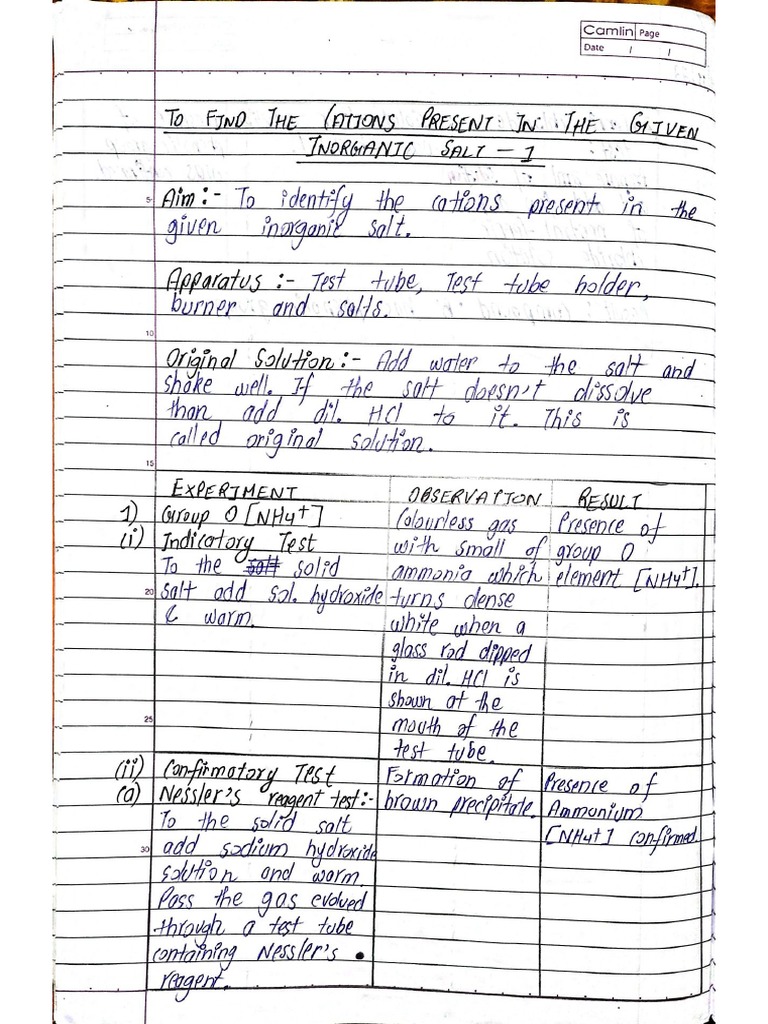 Camlin Page
Date / /
TO FIND THE CATIONS PRESENT IN THE GIVEN
INORGANIC SALT - 1
5 Aim :- To identify the cations present in the
given inorganic salt.
Apparatus :- Test tube, Test tube holder,
burner and salts.
10
Original Solution :- Add water to the salt and
shake well. If the salt doesn't dissolve
than add dil. HCl to it. This is
called original solution.
15
EXPERIMENT
1) Group 0 [NH4+]
(i) Indicatory Test
To the salt solid
20 salt add sol. hydroxide
& warm.
25
OBSERVATION
Colourless gas
with small of
ammonia which
turns dense
white when a
glass rod dipped
in dil. HCl is
shown at the
mouth of the
test tube.
RESULT
Presence of
group 0
element [NH4+].
(ii) Confirmatory Test
(a) Nessler's reagent test:-
To the solid salt
30 add sodium hydroxide
solution and warm.
Pass the gas evolved
through a test tube
containing Nessler's
reagent.
Formation of
brown precipitate.
Presence of
Ammonium
[NH4+] confirmed.